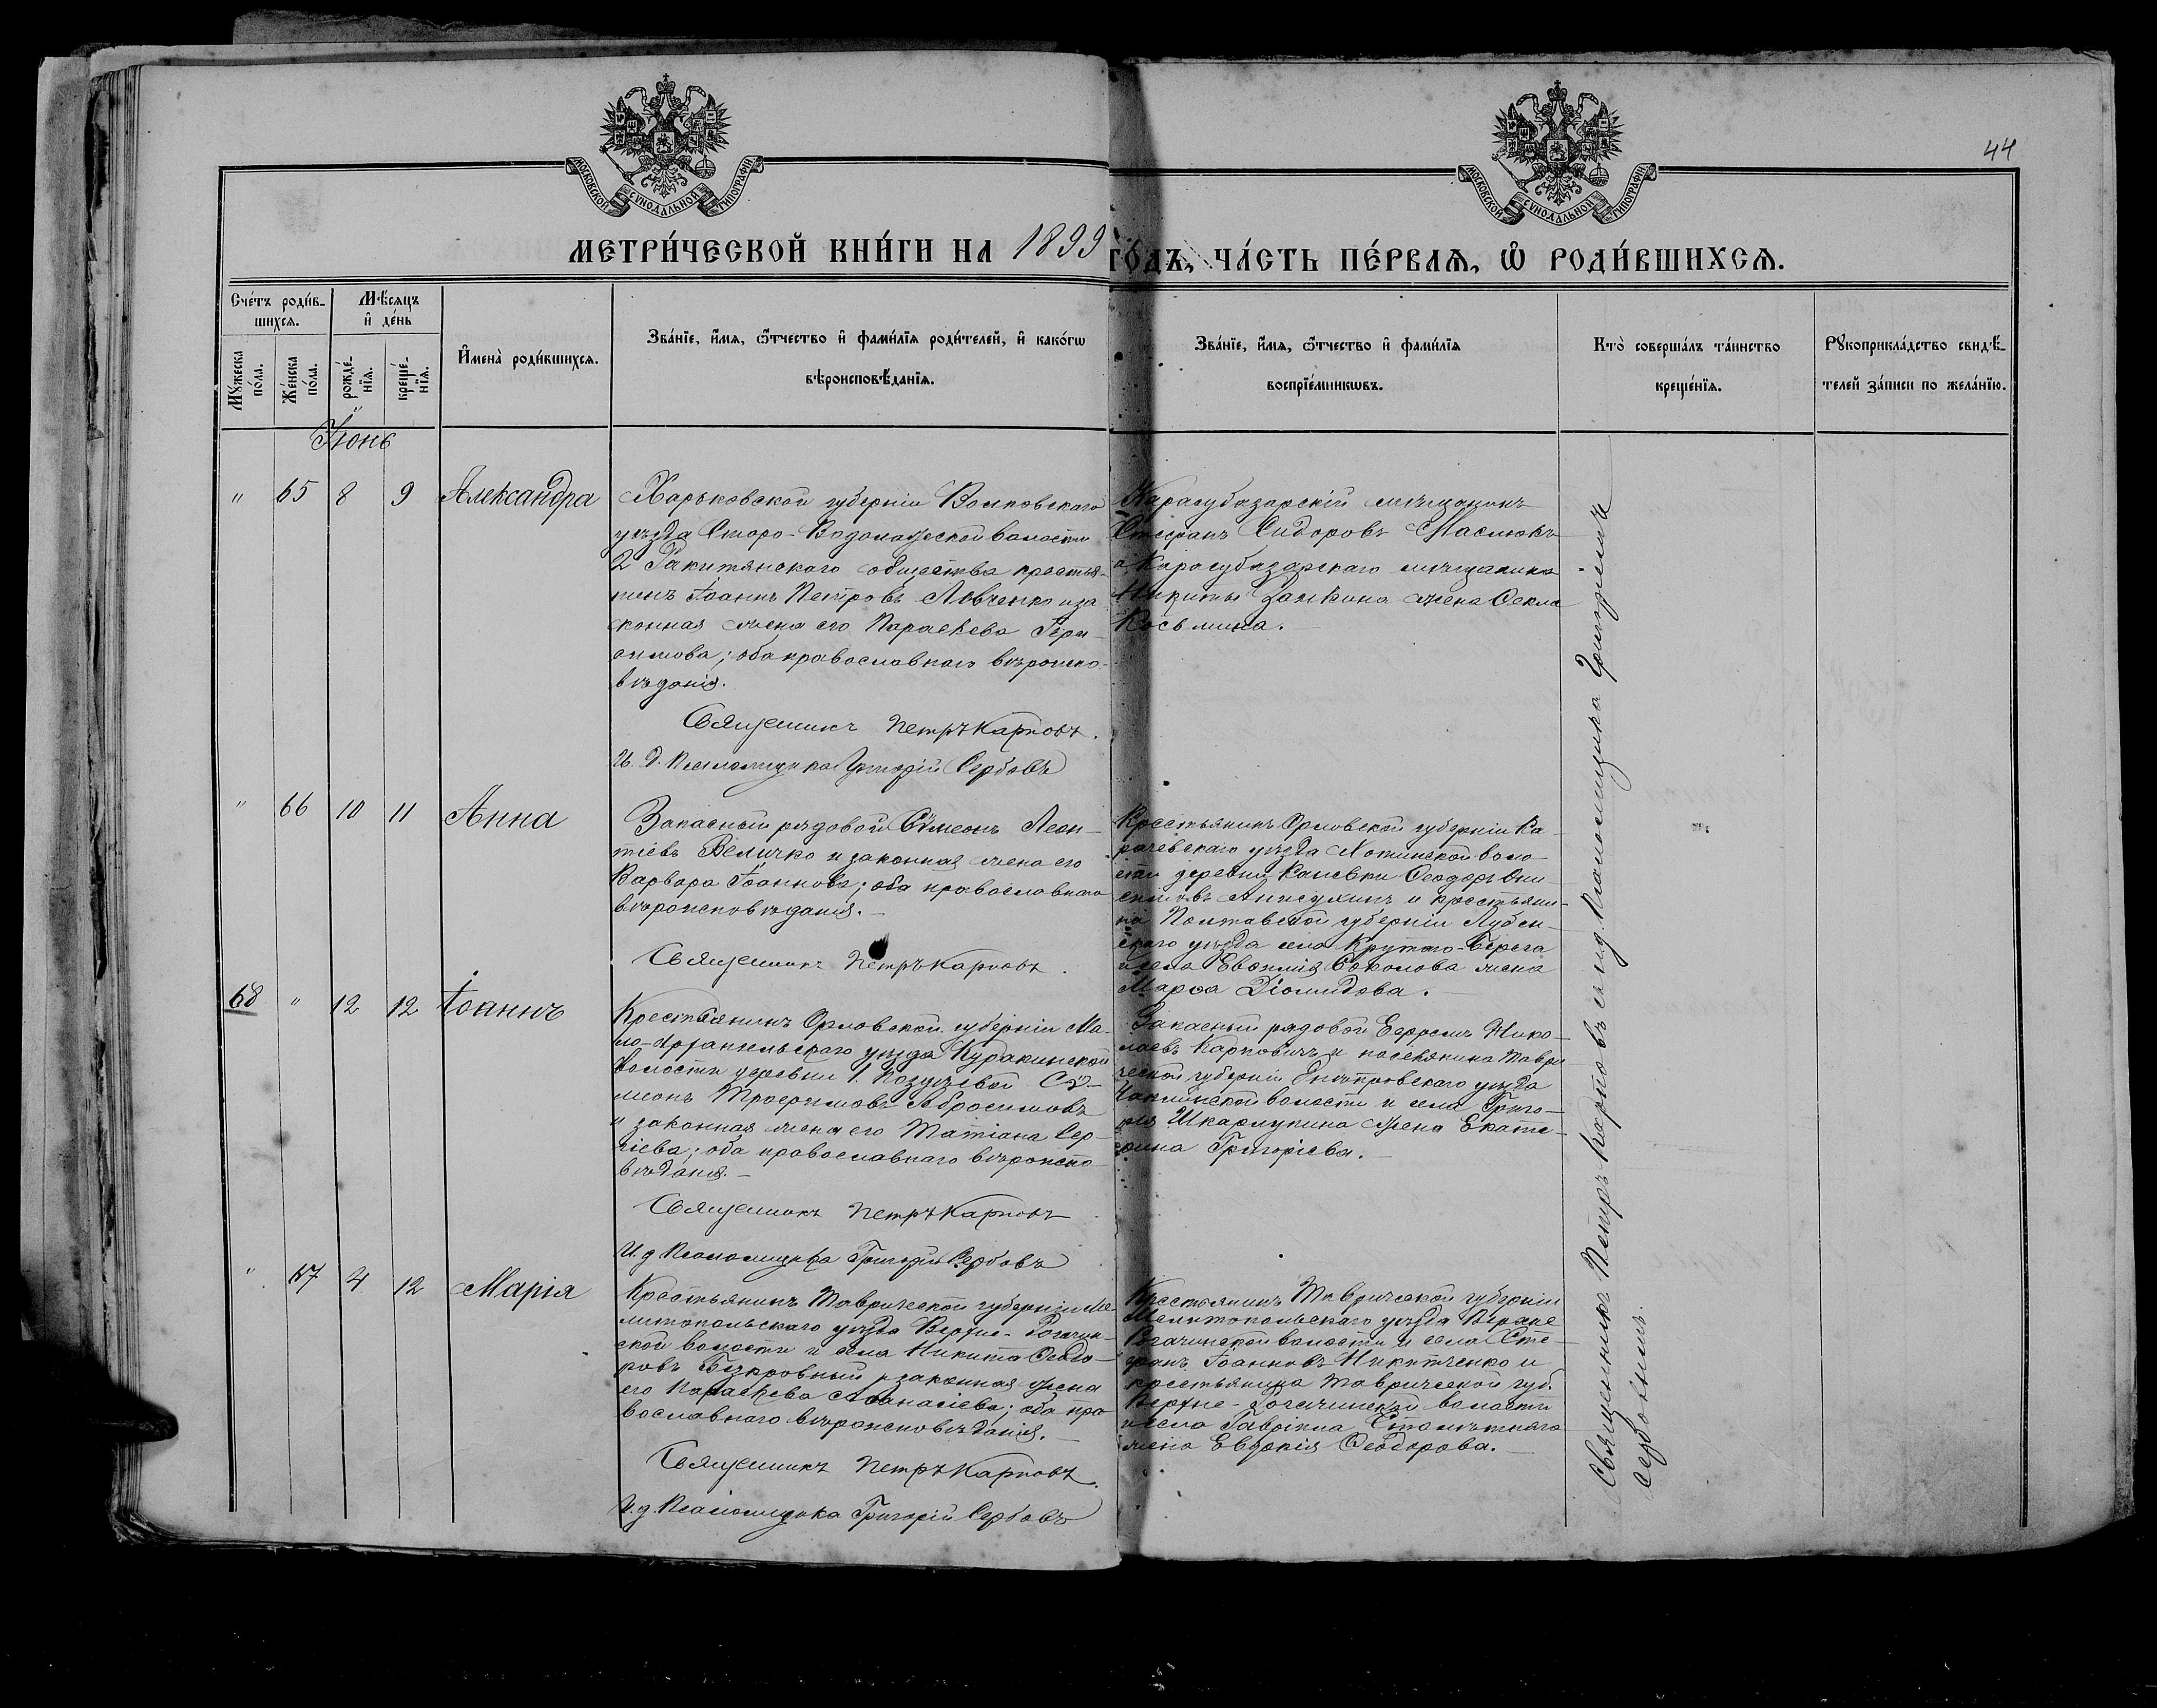 44
МОСКОВСКОЙ СѴНОДАЛЬНОЙ ТИПОГРАФІИ
МОСКОВСКОЙ СѴНОДАЛЬНОЙ ТИПОГРАФІИ
МЕТРИ́ЧЕСКОЙ КНИ́ГИ НА 1899 ГО́ДЪ, ЧА́СТЬ ПЕ́РВАѦ, Ѽ РОДИ́ВШИХСѦ.
Сче́тъ роди́в-
шихсѧ.
Мѣ́сѧцъ
и҆ де́нь
Мꙋжеска
по́ла.
Же́нска
по́ла.
рожде́-
нїѧ.
креще́-
нїѧ.
И҆мена̀ роди́вшихсѧ.
Зва́нїе, и҆́мѧ, ѻ҆́тчество и҆ фами́лїѧ роди́телей, и҆ како́гѡ
вѣроисповѣ́данїѧ.
Зва́нїе, и҆́мѧ, ѻ҆́тчество и҆ фами́лїѧ
воспрїе́мникѡвъ.
Кто̀ соверша́лъ та́инство
креще́нїѧ.
Рꙋкоприкла́дство свидѣ́-
телей за́писи по жела́нїю.
Іюнь
" 65 8 9 Александра
Харьковской губерніи Волковскаго
уѣзда Старо-Водолажской волости
2 Ракитянскаго общества крестья-
нинъ Іоаннъ Петровъ Левченко и за
конная жена его Параскева Гера-
симова; оба православнаго вѣроиспо-
вѣданія.
Священникъ Петръ Карповъ.
И. д. Псаломщика Григорій Сербовъ
Карасубазарскій мѣщанинъ
Стефанъ Сидоровъ Маслюкъ
и Карасубазарскаго мѣщанина
Никиты жена Ѳекла
Косьмина.
" 66 10 11 Анна
Запасный рядовой Сѵмеонъ Леон-
тіевъ Величко и законная жена его
Варвара Іоаннова; оба православнаго
вѣроисповѣданія.
Священникъ Петръ Карповъ.
Крестьянинъ Орловской губерніи Ка-
рачевскаго уѣзда Хотинской воло-
сти деревни Ѳеодоръ Они-
симовъ и крестьяни-
на Полтавской губерніи Лубен-
скаго уѣзда села Крутаго-Берега
Евѳимія Соколова жена
Марѳа Діомидова.
68 " 12 12 Іоаннъ
Крестьянинъ Орловской губерніи Ма-
ло-Архангельскаго уѣзда Куракинской
волости деревни 1. Сѵ-
меонъ Трофимовъ Абросимовъ
и законная жена его Татіана Сер-
гіева; оба православнаго вѣроиспо-
вѣданія.
Священникъ Петръ Карповъ
И. д. Псаломщика Григорій Сербовъ
Запасный рядовой Ефремъ Нико-
лаевъ Карповичъ и поселянина Таври
ческой губерніи Днѣпровскаго уѣзда
Чаплинской волости и села Григо-
рія Шкарупина жена Екате-
рина Григоріева.
" 67 4 12 Марія
Крестьянинъ Таврической губерніи Ме-
литопольскаго уѣзда Верхне-Рогачин-
ской волости и села Никита Ѳеодо-
ровъ Безкровный и законная жена
его Параскева Аѳанасіева; оба пра
вославнаго вѣроисповѣданія.
Священникъ Петръ Карповъ.
И. д. Псаломщика Григорій Сербовъ
Крестьянинъ Таврической губерніи
Мелитопольскаго уѣзда Верхне
Рогачинской волости и села Сте-
фанъ Іоанновъ Никитченко и
крестьянина Таврической губ.
Верхне-Рогачинской волости
и села Гавріила Столѣтняго
жена Евдокія Ѳеодорова.
Священникъ Петръ Карповъ съ и.д. псаломщика Григоріемъ
Сербовымъ.